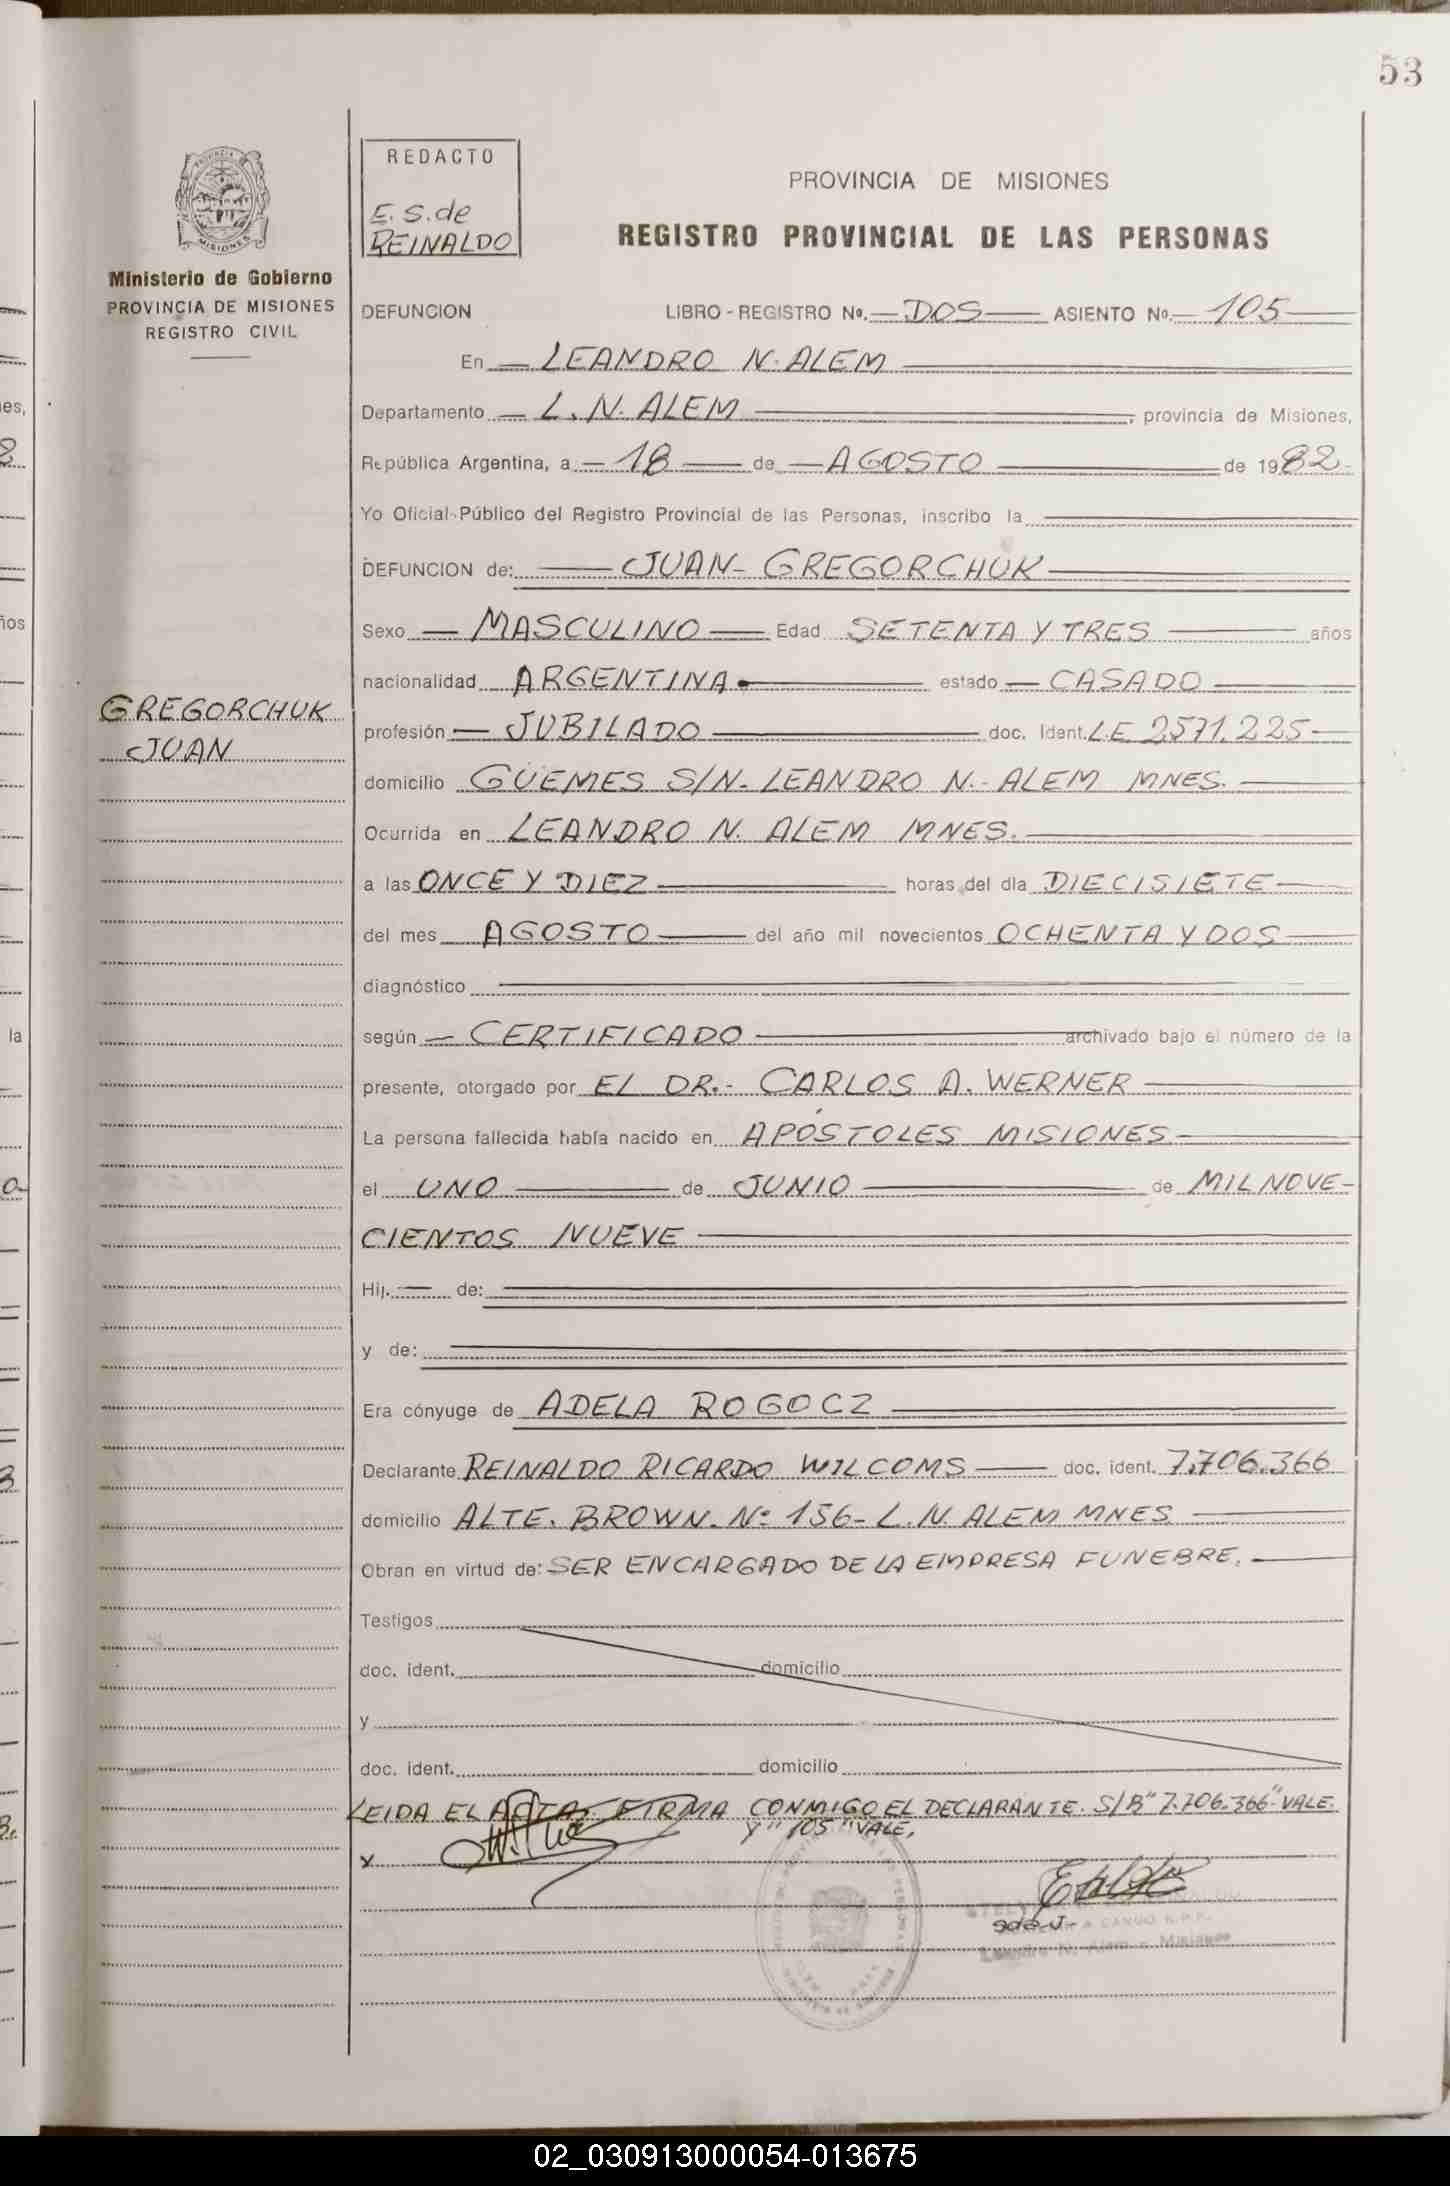 53
REDACTO
E. S. de
REINALDO
PROVINCIA DE MISIONES
REGISTRO PROVINCIAL DE LAS PERSONAS
Ministerio de Gobierno
PROVINCIA DE MISIONES
REGISTRO CIVIL
DEFUNCION LIBRO - REGISTRO Nº. DOS ASIENTO Nº. 105
En LEANDRO N. ALEM
Departamento L. N. ALEM, provincia de Misiones,
República Argentina, a 18 de AGOSTO de 1982
Yo Oficial Público del Registro Provincial de las Personas, inscribo la
DEFUNCION de: JUAN- GREGORCHUK
Sexo MASCULINO Edad SETENTA Y TRES años
nacionalidad ARGENTINA estado CASADO
GREGORCHUK
JUAN
profesión JUBILADO doc. Ident. L.E. 2571.225
domicilio GÜEMES S/N- LEANDRO N.- ALEM MNES.
Ocurrida en LEANDRO N. ALEM MNES.
a las ONCE Y DIEZ horas del día DIECISIETE
del mes AGOSTO del año mil novecientos OCHENTA Y DOS
diagnóstico
según CERTIFICADO archivado bajo el número de la
presente, otorgado por EL DR.- CARLOS A. WERNER
La persona fallecida había nacido en APÓSTOLES MISIONES
el UNO de JUNIO de MIL NOVE-
CIENTOS NUEVE
Hij. de:
y de:
Era cónyuge de ADELA ROGOCZ
Declarante REINALDO RICARDO WILCOMS doc. ident. 7.706.366
domicilio ALTE. BROWN. Nº 156- L. N. ALEM MNES
Obran en virtud de: SER ENCARGADO DE LA EMPRESA FUNEBRE.
Testigos
doc. ident. domicilio
y
doc. ident. domicilio
LEIDA EL ACTA FIRMA CONMIGO EL DECLARANTE. S/R "7.706.366" VALE.
Y "105" VALE.
Leandro N. Alem - Misiones
02_030913000054-013675